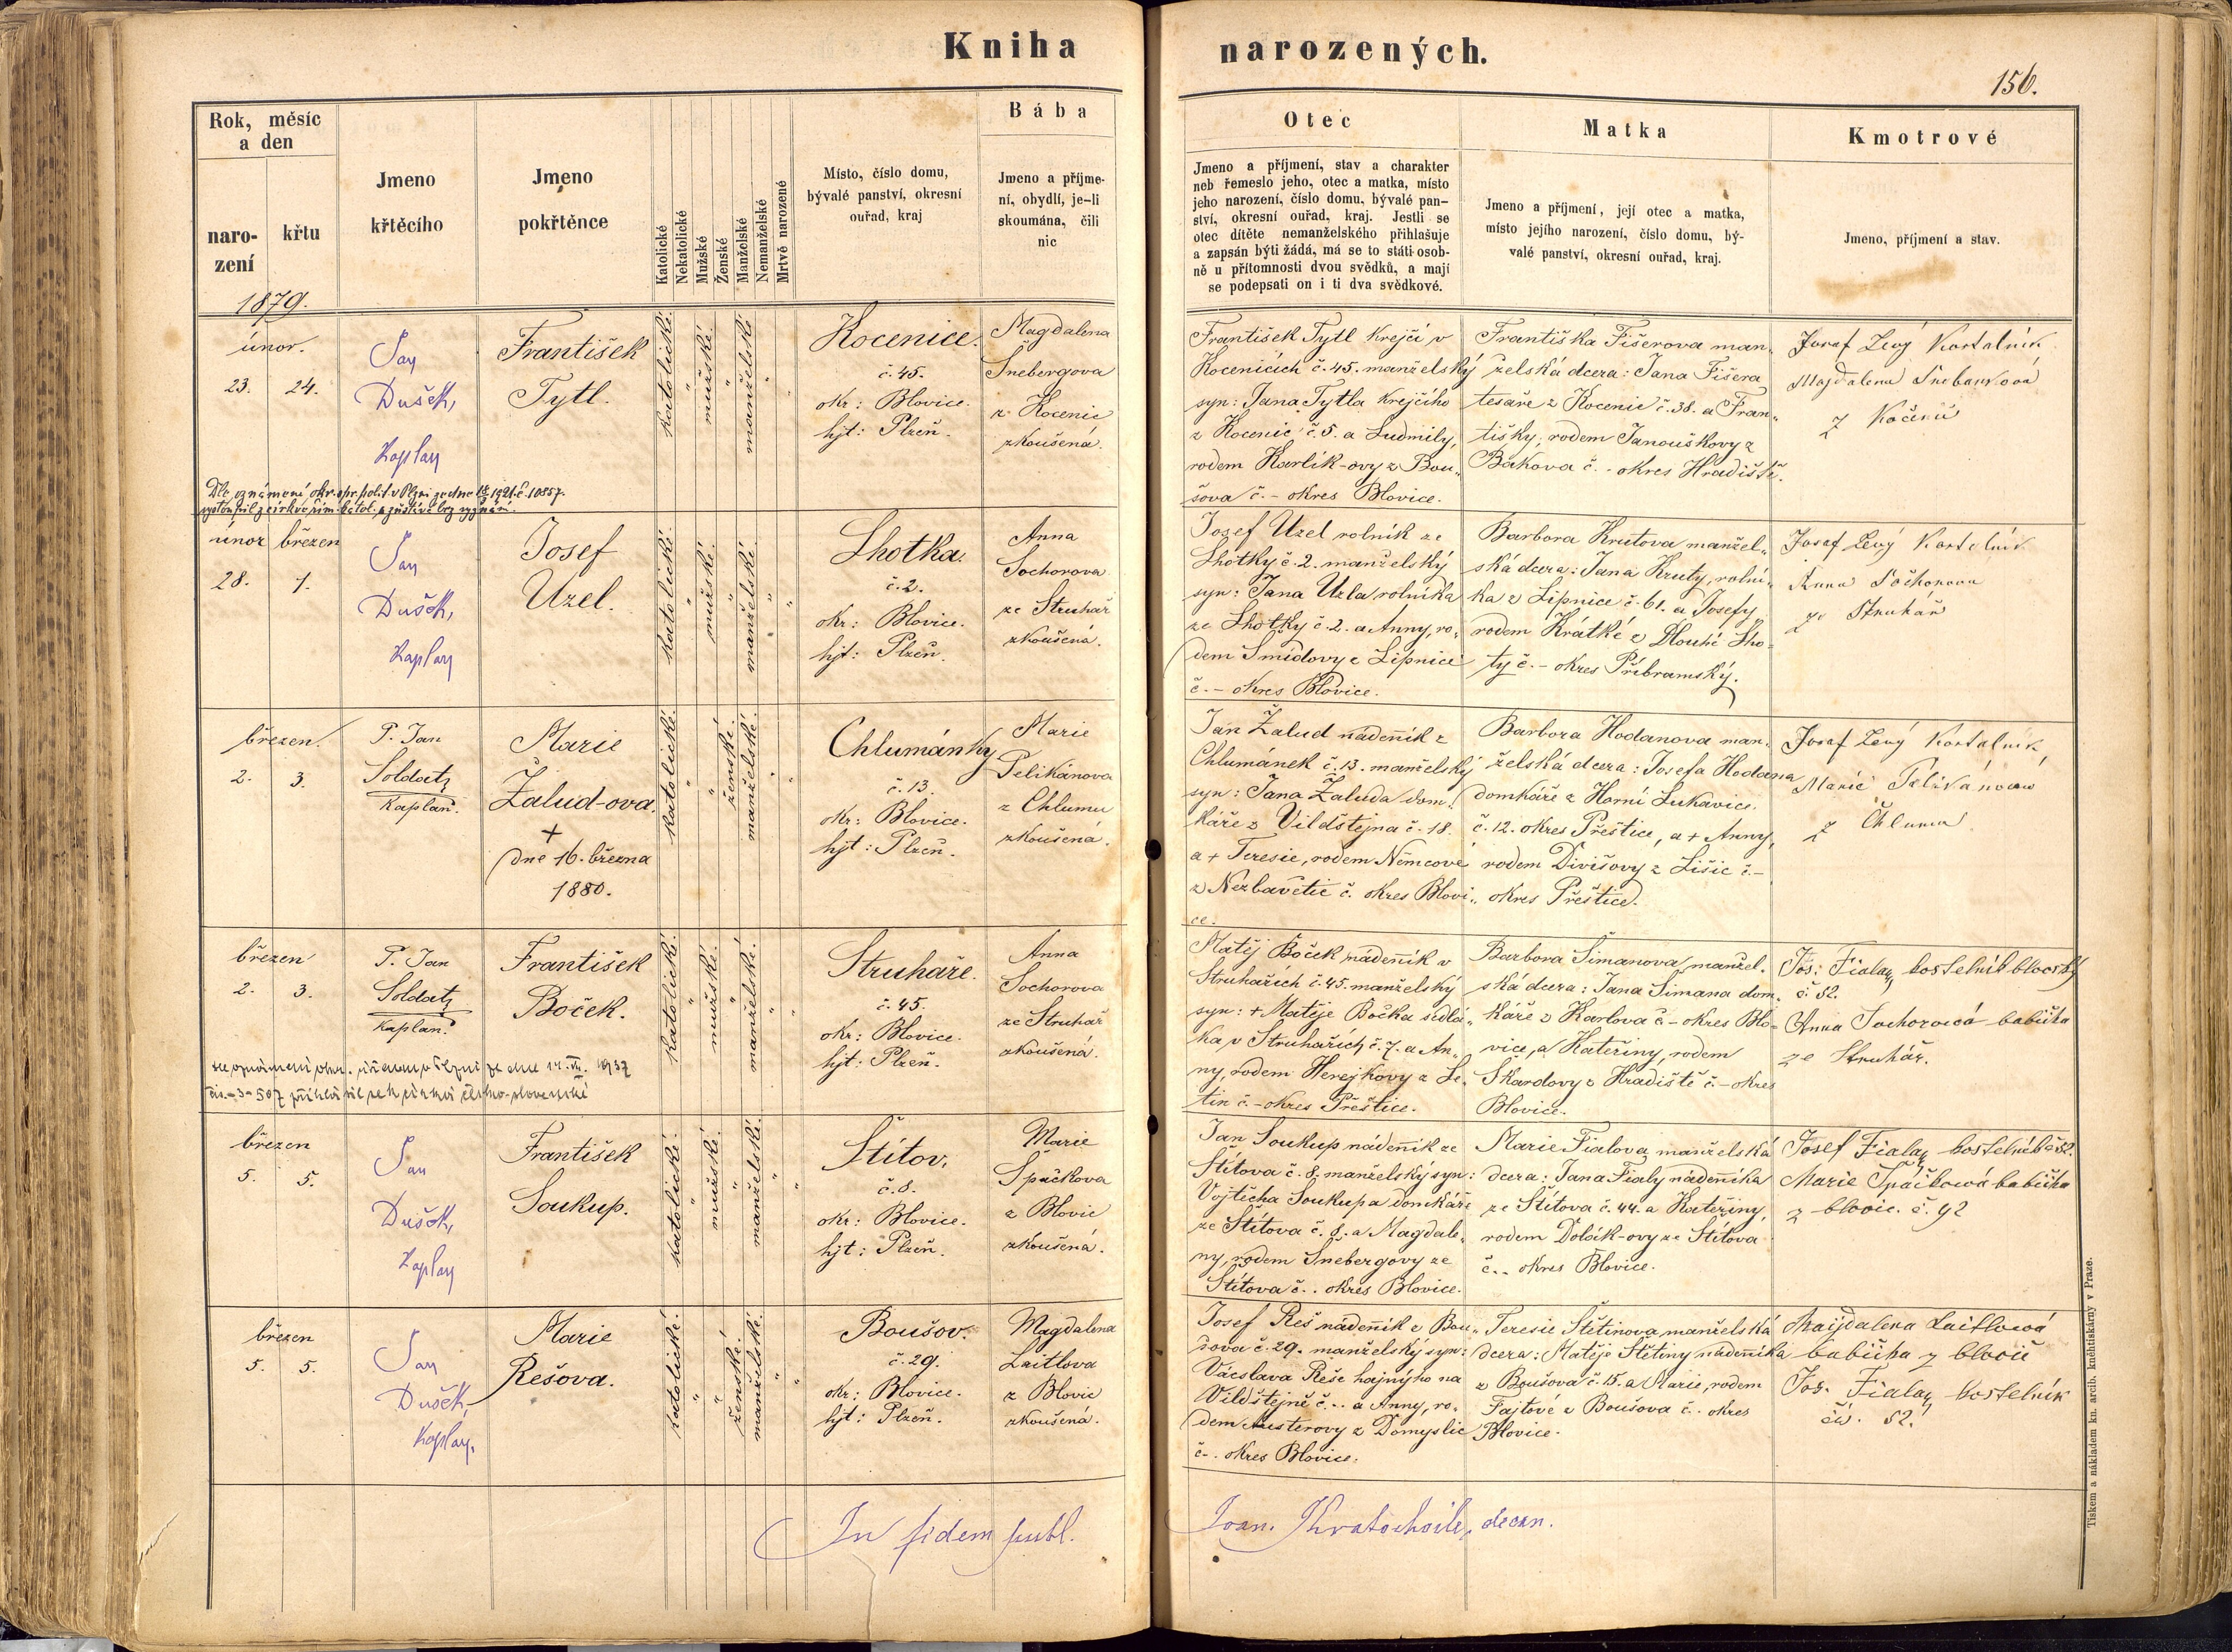 Kniha narozených.
156.
Rok, měsíc
a den
naro-
zení
křtu
Jmeno
křtěcího
Jmeno
pokřtěnce
Katolické
Nekatolické
Mužské
Ženské
Manželské
Nemanželské
Mrtvě narozené
Místo, číslo domu,
bývalé panství, okresní
ouřad, kraj
Bába
Jmeno a příjme-
ní, obydlí, je-li
skoumána, čili
nic
Otec
Jmeno a příjmení, stav a charakter
neb řemeslo jeho, otec a matka, místo
jeho narození, číslo domu, bývalé pan-
ství, okresní ouřad, kraj. Jestli se
otec dítěte nemanželského přihlašuje
a zapsán býti žádá, má se to státi osob-
ně u přítomnosti dvou svědků, a mají
se podepsati on i ti dva svědkové.
Matka
Jmeno a příjmení, její otec a matka,
místo jejího narození, číslo domu, bý-
valé panství, okresní ouřad, kraj.
Kmotrové
Jmeno, příjmení a stav.
1879.
únor.
23. 24.
Jan
Dušek,
Kaplan
František
Tytl.
katolické.
"
mužské.
"
manželské
"
"
Kocenice.
č. 45.
okr: Blovice.
hjt: Plzeň.
Magdalena
Šnebergova
z Kocenic
zkoušená.
František Tytl krejčí v
Kocenicích č. 45. manželský
syn: Jana Tytla krejčího
z Kocenic č. 5. a Ludmily,
rodem Karlík-ovy z Bou„
šova č. - okres Blovice.
Františka Fišerova man„
želská dcera: Jana Fišera
tesaře z Kocenic č. 38. a Fran„
tišky, rodem Janouškovy z
Bákova č. - okres Hradiště.
Josef Levý Kostelník
Magdalena
z
únor březen
28. 1.
Jan
Dušek,
Kaplan
Josef
Uzel.
katolické.
"
mužské.
"
manželské.
"
"
Lhotka.
č. 2.
okr: Blovice.
hjt: Plzeň.
Anna
Sochorova
ze Struhař
zkoušená.
Josef Uzel rolník ze
Lhotky č. 2. manželský
syn: Jana Uzla rolníka
ze Lhotky č. 2. a Anny, ro„
dem Šmídovy z Lipnice
č. - okres Blovice.
Barbora Krutova manžel„
ská dcera: Jana Kruty, rolní„
ka z Lipnice č. 61. a Josefy
rodem Krátké z Dlouhé Lho-
ty č. - okres Příbramský.
Josef Levý Kostelník
Anna Sochorova
ze Struhař
březen.
2. 3.
P. Jan
Soldatz
Kaplan.
Marie
Žalud-ova.
+
dne 16. března
1880.
katolické.
"
"
ženské.
manželské.
"
"
Chlumánky
č. 13.
okr: Blovice.
hjt: Plzeň.
Marie
Pelikánova
z Chlumu
zkoušená.
Jan Žalud nádenník z
Chlumánek č. 13. manželský
syn: Jana Žaluda dom„
káře z Vildštejna č. 18.
a + Teresie, rodem Němcové
z Nezbavětic č. okres Blovi„
ce.
Barbora Hodanova man„
želská dcera: Josefa Hodana
domkáře z Horní Lukavice.
č. 12. okres Přeštice, a + Anny,
rodem Divišovy z Lišic č. -
okres Přeštice.
Josef Levý Kostelník
Marie Pelikánova
z Chlumu
březen
2. 3.
P. Jan
Soldatz
Kaplan.
František
Boček.
katolické.
"
mužské.
"
manželské.
"
"
Struhaře.
č. 45.
okr: Blovice.
hjt: Plzeň.
Anna
Sochorova
ze Struhař
zkoušená.
Matěj Boček nádenník v
Struhařích č. 45. manželský
syn: + Matěje Bočka sedlá„
ka v Struhařích č. 7. a An„
ny, rodem Herejkovy z Le„
tin č. - okres Přeštice.
Barbora Šimanova, manžel„
ská dcera: Jana Šimana dom„
káře z Karlova č - okres Blo-
vice, a Kateřiny, rodem
Škardovy z Hradiště č. - okres
Blovice.
Jos: Fiala, kostelník blovský
č. 52.
Anna Sochorová babička
ze Struhař.
březen
5. 5.
Jan
Dušek,
Kaplan
František
Soukup.
katolické.
"
mužské.
"
manželské.
"
"
Štítov.
č. 8.
okr: Blovice.
hjt: Plzeň.
Marie
Špačkova
z Blovic
zkoušená.
Jan Soukup nádenník ze
Štítova č. 8. manželský syn:
Vojtěcha Soukupa domkáře
ze Štítova č. 8. a Magdale„
ny, rodem Šnebergovy ze
Štítova č. . okres Blovice.
Marie Fialova manželská
dcera: Jana Fialy nádenníka
ze Štítova č. 44. a Kateřiny,
rodem Dolák-ovy ze Štítova
č. . okres Blovice.
Josef Fiala, kostelník č 52.
Marie Špáčková babička
z blovic. č. 92
březen
5. 5.
Jan
Dušek,
Kaplan.
Marie
Rešova.
katolické.
"
"
ženské.
manželské.
"
"
Boušov.
č. 29.
okr: Blovice.
hjt: Plzeň.
Magdalena
Laitlova
z Blovic
zkoušená.
Josef Reš nádenník z Bou„
šova č. 29. manželský syn:
Václava Reše hajnýho na
Vildštejně č. . . a Anny, ro„
dem z Domyslic
č. . okres Blovice.
Teresie Štětinova manželská
dcera: Matěje Štětiny nádenníka
z Boušova č. 15. a Marie, rodem
Fajtové z Boušova č. . okres
Blovice.
Magdalena Laitlová
babička z blovic
Jos. Fiala, kostelník
čís. 52.
In fidem publ.
Joan. Kratochvile, decan.
Tiskem a nákladem kn. arcib. kněhtiskárny v Praze.